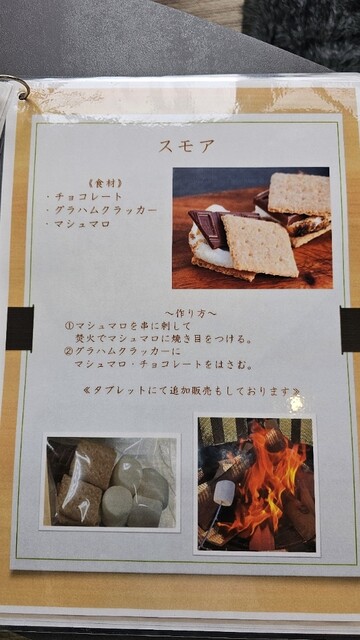 スモア
《食材》
・チョコレート
・グラハムクラッカー
・マシュマロ
～作り方～
①マシュマロを串に刺して
焚火でマシュマロに焼き目をつける。
②グラハムクラッカーに
マシュマロ・チョコレートをはさむ。
≪タブレットにて追加販売もしております≫